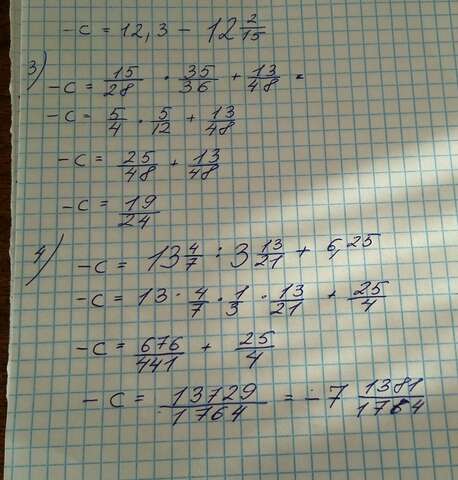 -c = 12,3 - 12 2/15
3)
-c = 15/28 · 35/36 + 13/48 =
-c = 5/4 · 5/12 + 13/48
-c = 25/48 + 13/48
-c = 19/24
4)
-c = 13 4/7 : 3 13/21 + 6,25
-c = 13 · 4/7 · 1/3 · 13/21 + 25/4
-c = 676/441 + 25/4
-c = 13729/1764 = -7 1381/1764